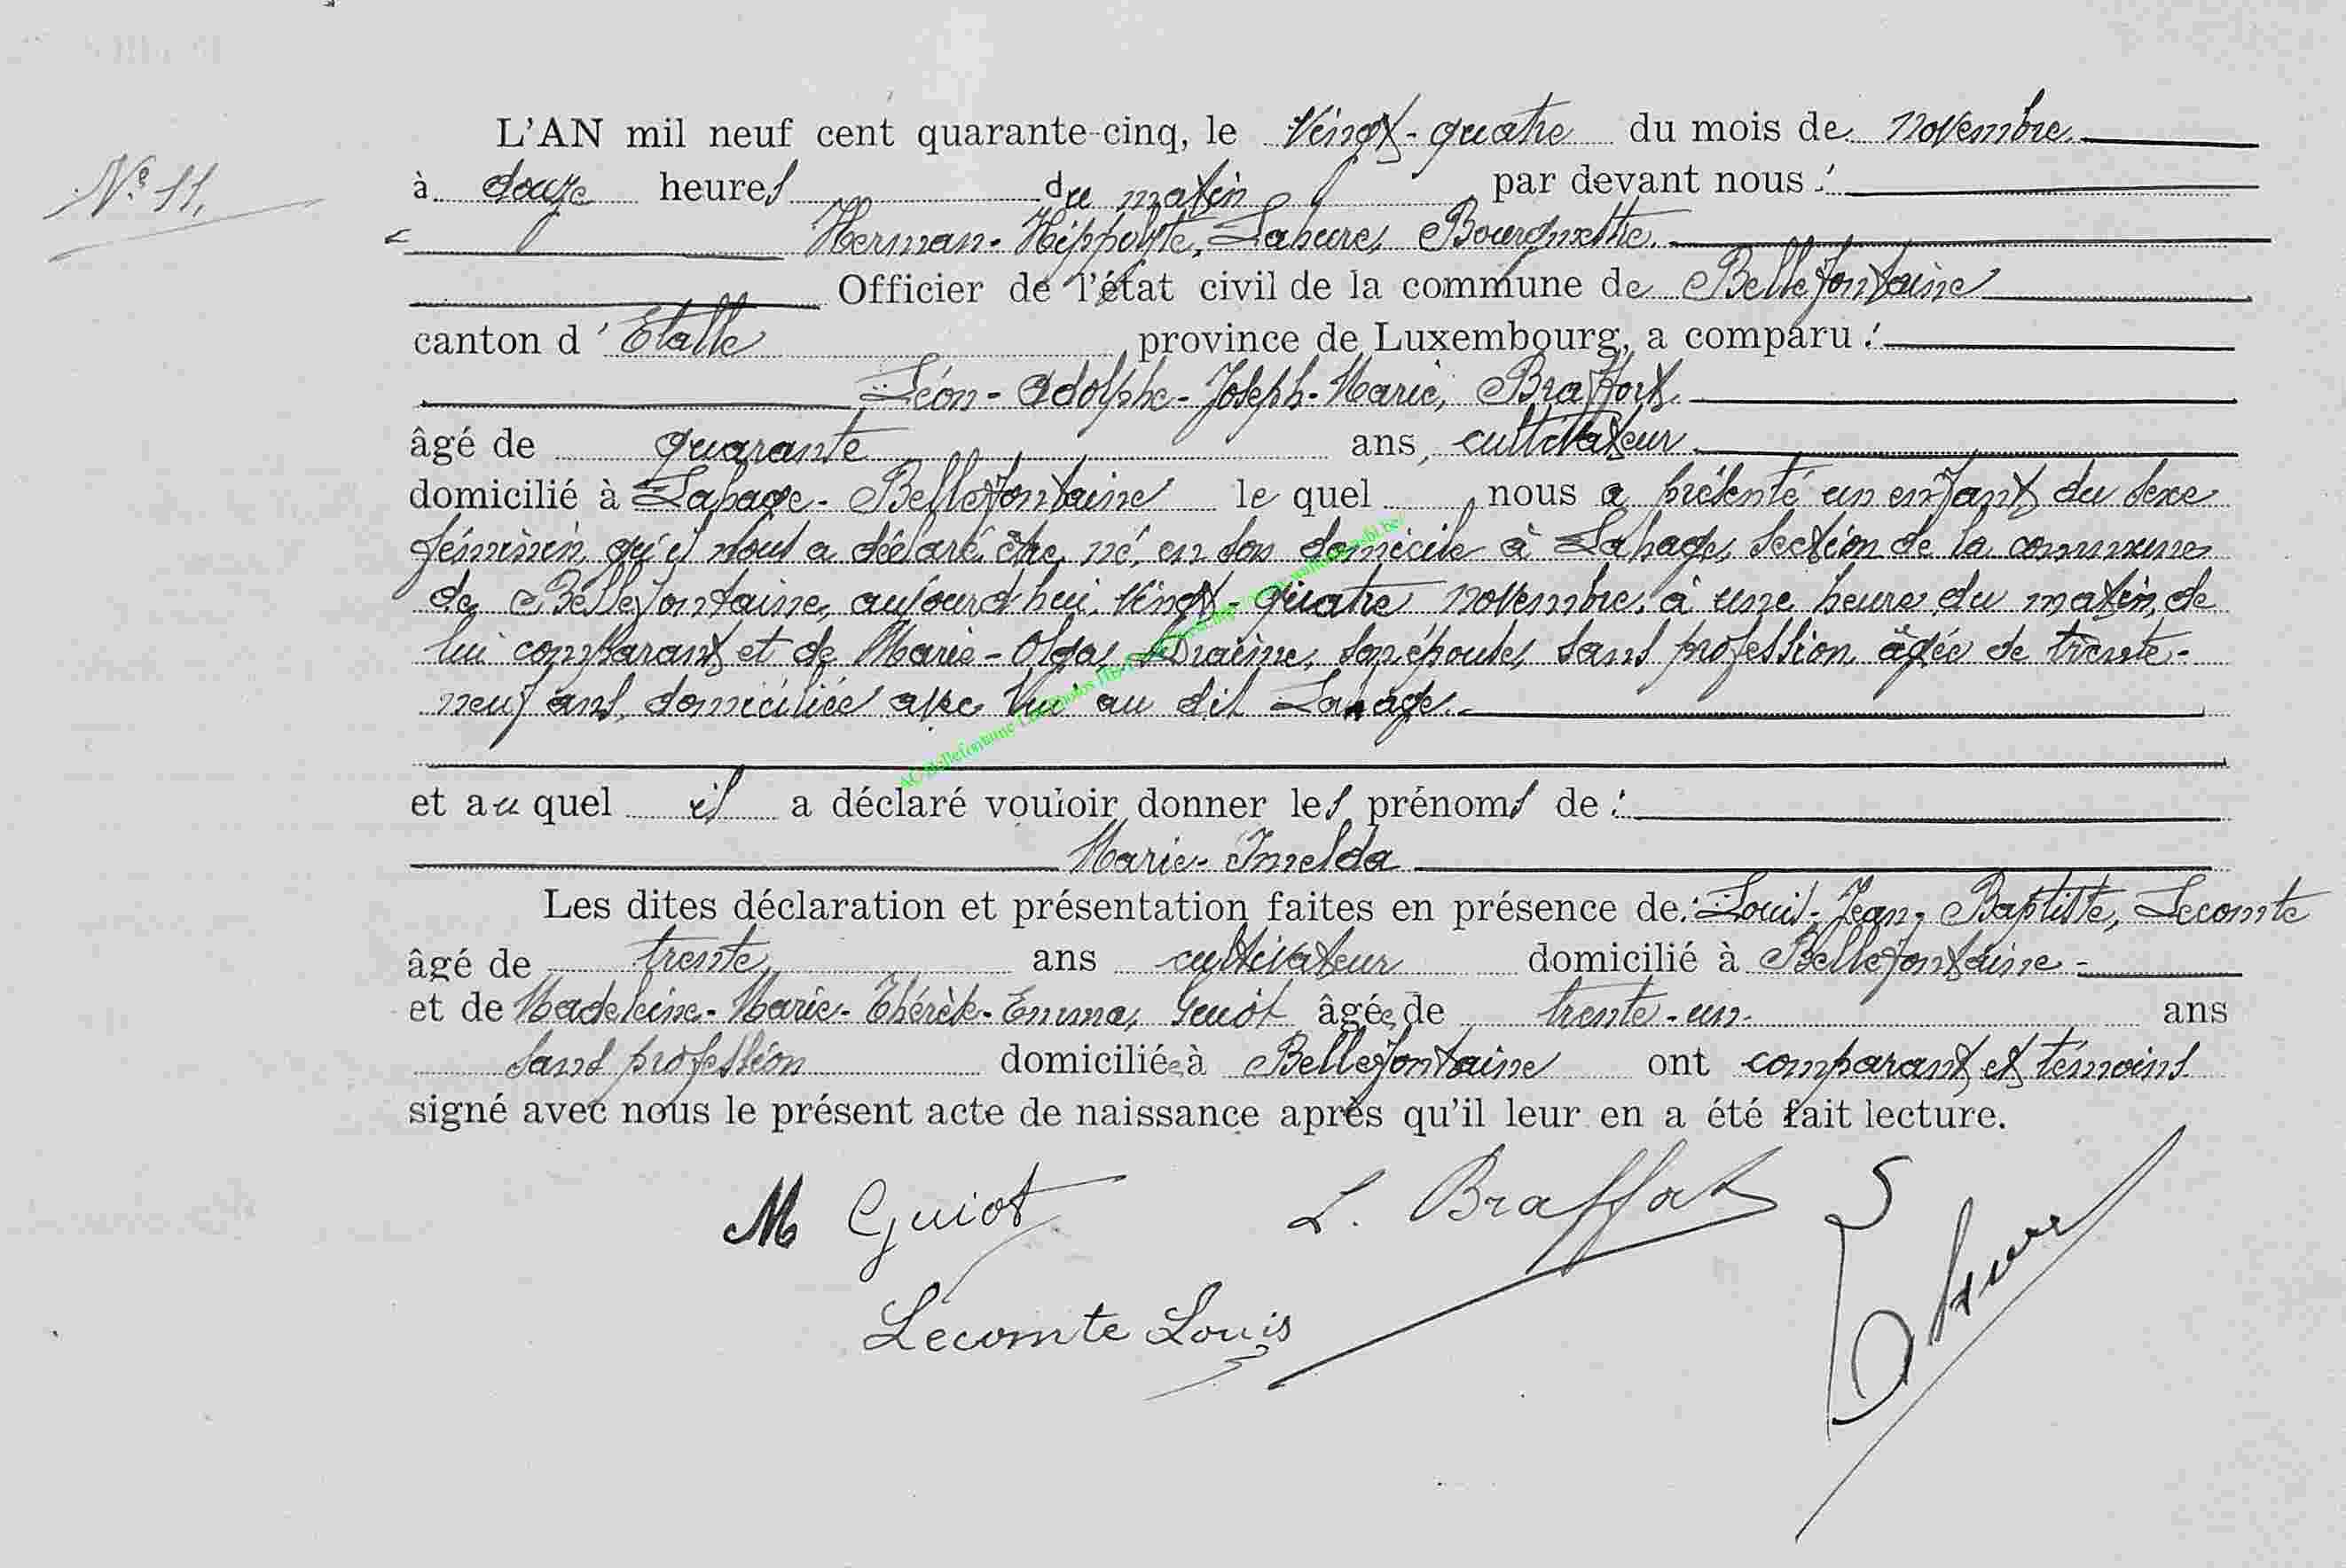 L'AN mil neuf cent quarante-cinq, le vingt-quatre du mois de novembre
N° 11.
à douze heures du matin par devant nous :
Herman-Hippolyte, Lahure, Bourgmestre
Officier de l'état civil de la commune de Bellefontaine
canton d'Etalle province de Luxembourg, a comparu :
Léon-Adolphe-Joseph-Marie, Braffort
âgé de quarante ans, cultivateur
domicilié à Lahage-Bellefontaine le quel nous a présenté un enfant du sexe
féminin, qu'il nous a déclaré être né, en son domicile à Lahage, section de la commune
de Bellefontaine, aujourd'hui vingt-quatre novembre, à une heure du matin, de
lui comparant et de Marie-Olga, Draime, son épouse, sans profession âgée de trente-
neuf ans, domiciliée avec lui au dit Lahage.
et au quel il a déclaré vouloir donner les prénoms de :
Marie-Imelda
Les dites déclaration et présentation faites en présence de : Louis-Jean-Baptiste, Lecomte
âgé de trente ans cultivateur domicilié à Bellefontaine -
et de Madeleine-Marie-Thérèse-Emma, Guiot âgée de trente-un ans
sans profession domiciliée à Bellefontaine ont comparant et témoins
signé avec nous le présent acte de naissance après qu'il leur en a été fait lecture.
M Guiot L. Braffort
Lahure
Lecomte Louis